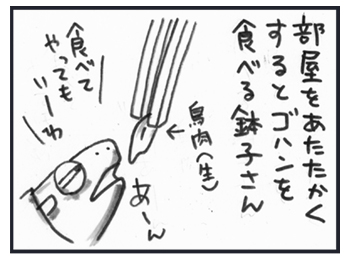 部屋をあたたかく
するとゴハンを
食べる鉢子さん
鳥肉（生）
食べて
やっても
いーわ
あーん